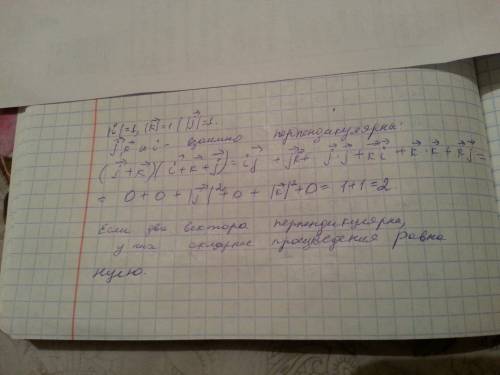 |i⃗|=1, |k⃗|=1, |j⃗|=1.
j⃗, k⃗ и i⃗ - взаимно перпендикулярна.
(j⃗+k⃗)(i⃗+k⃗+j⃗)=i⃗j⃗ + j⃗k⃗+ j⃗·j⃗+k⃗i⃗+k⃗·k⃗+k⃗j⃗=
= 0+0+|j⃗|²+0+|k⃗|²+0=1+1=2
Если два вектора перпендикулярна,
у них скалярное произведения равна
нулю.